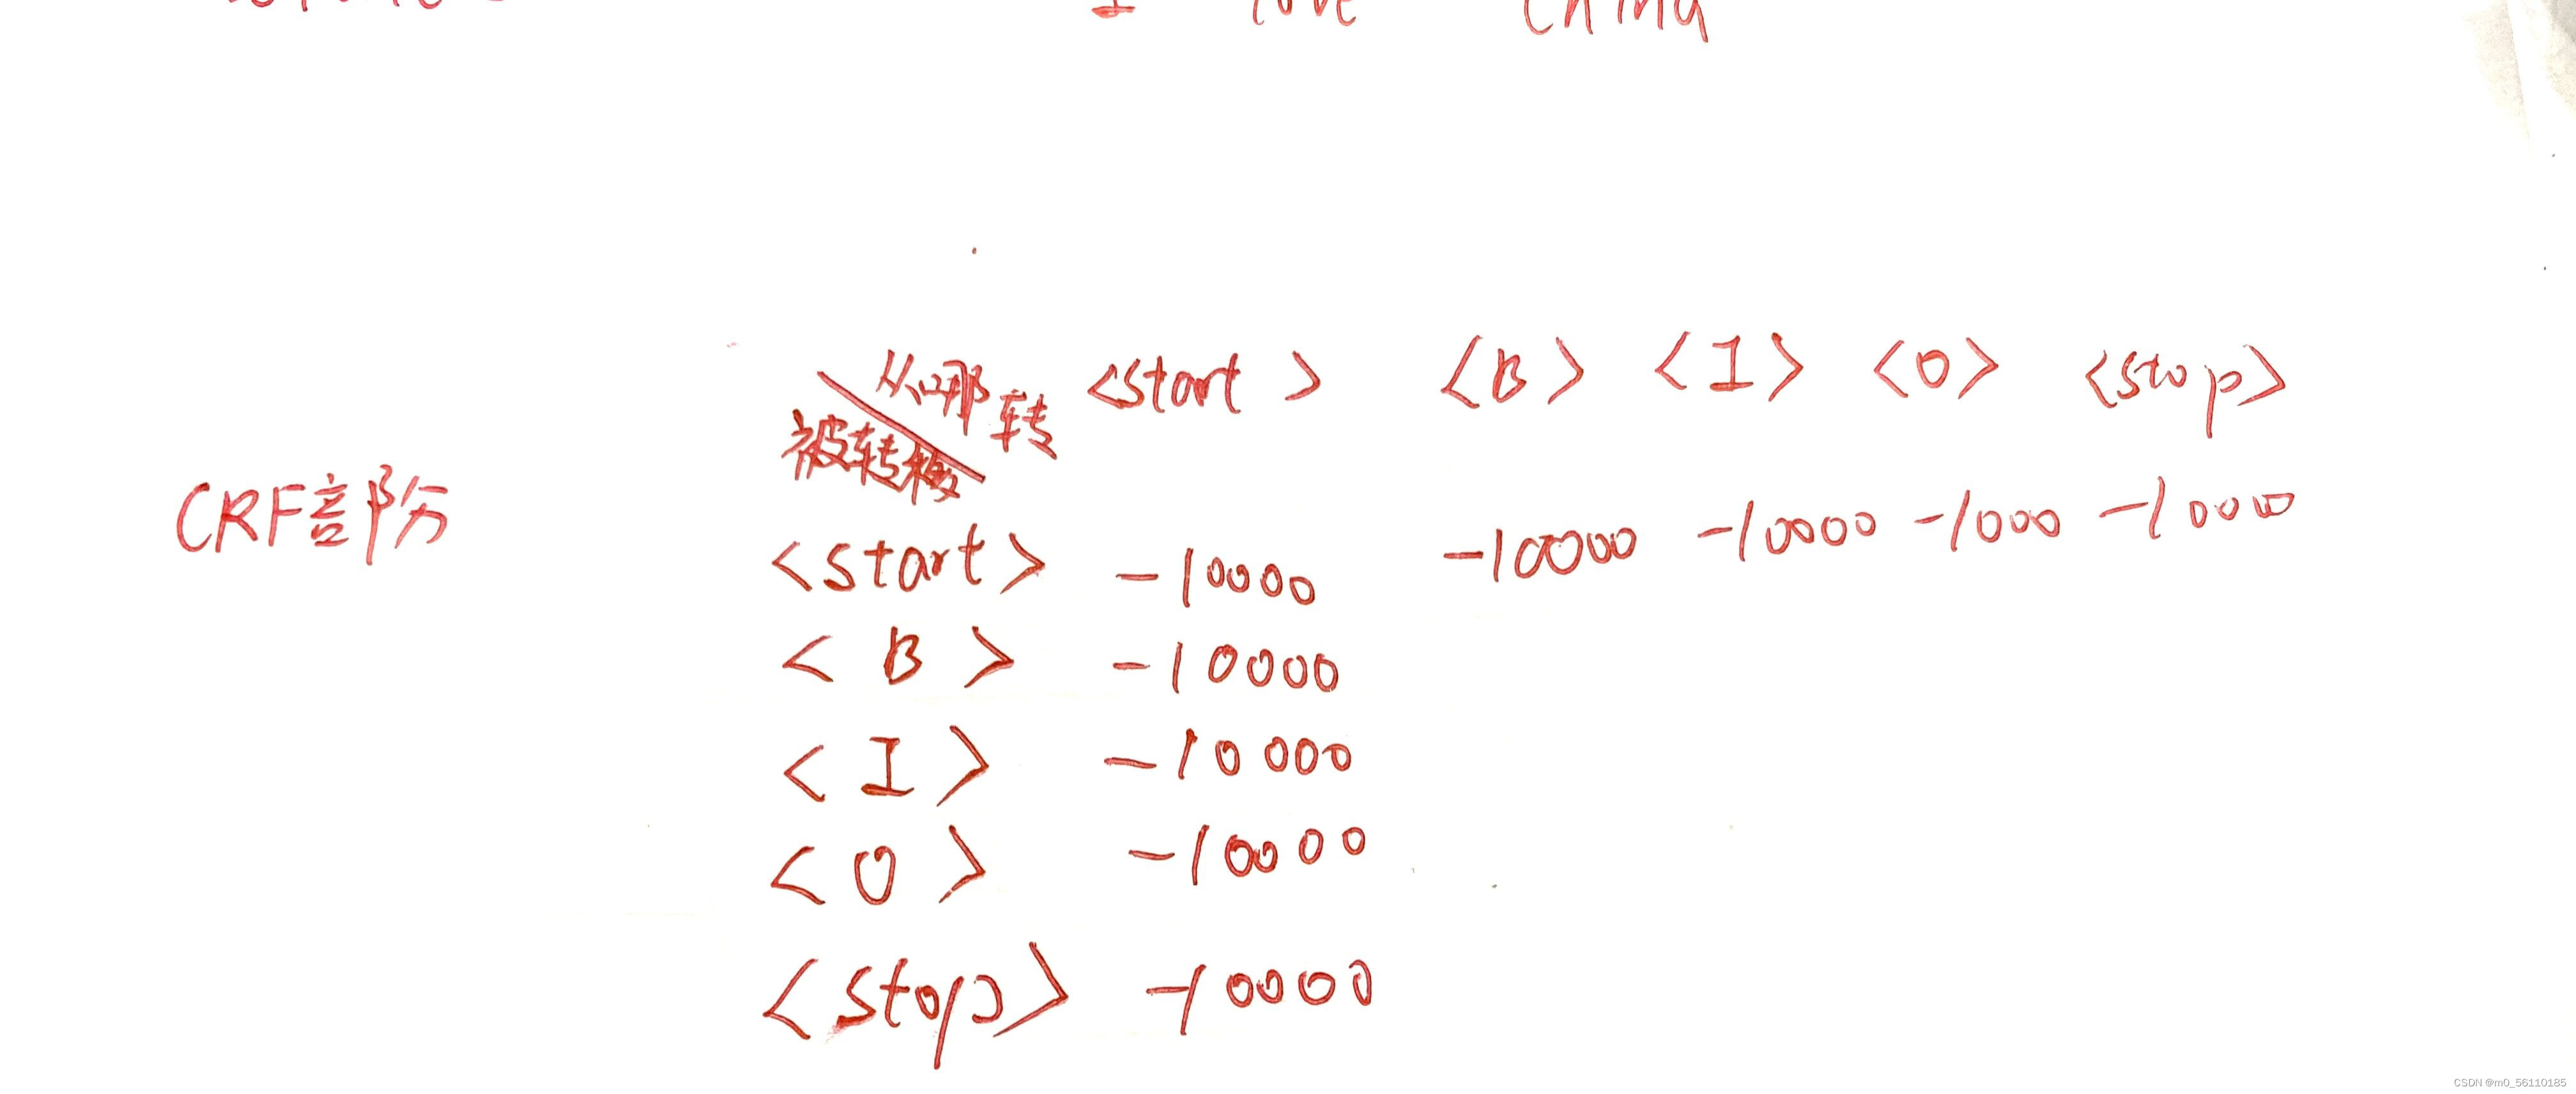 I love China
从哪转 <start> <B> <I> <O> <stop>
被转移
CRF部份
<start> -10000 -10000 -10000 -1000 -10000
<B> -10000
<I> -10000
<O> -10000
<stop> -10000
CSDN @m0_56110185